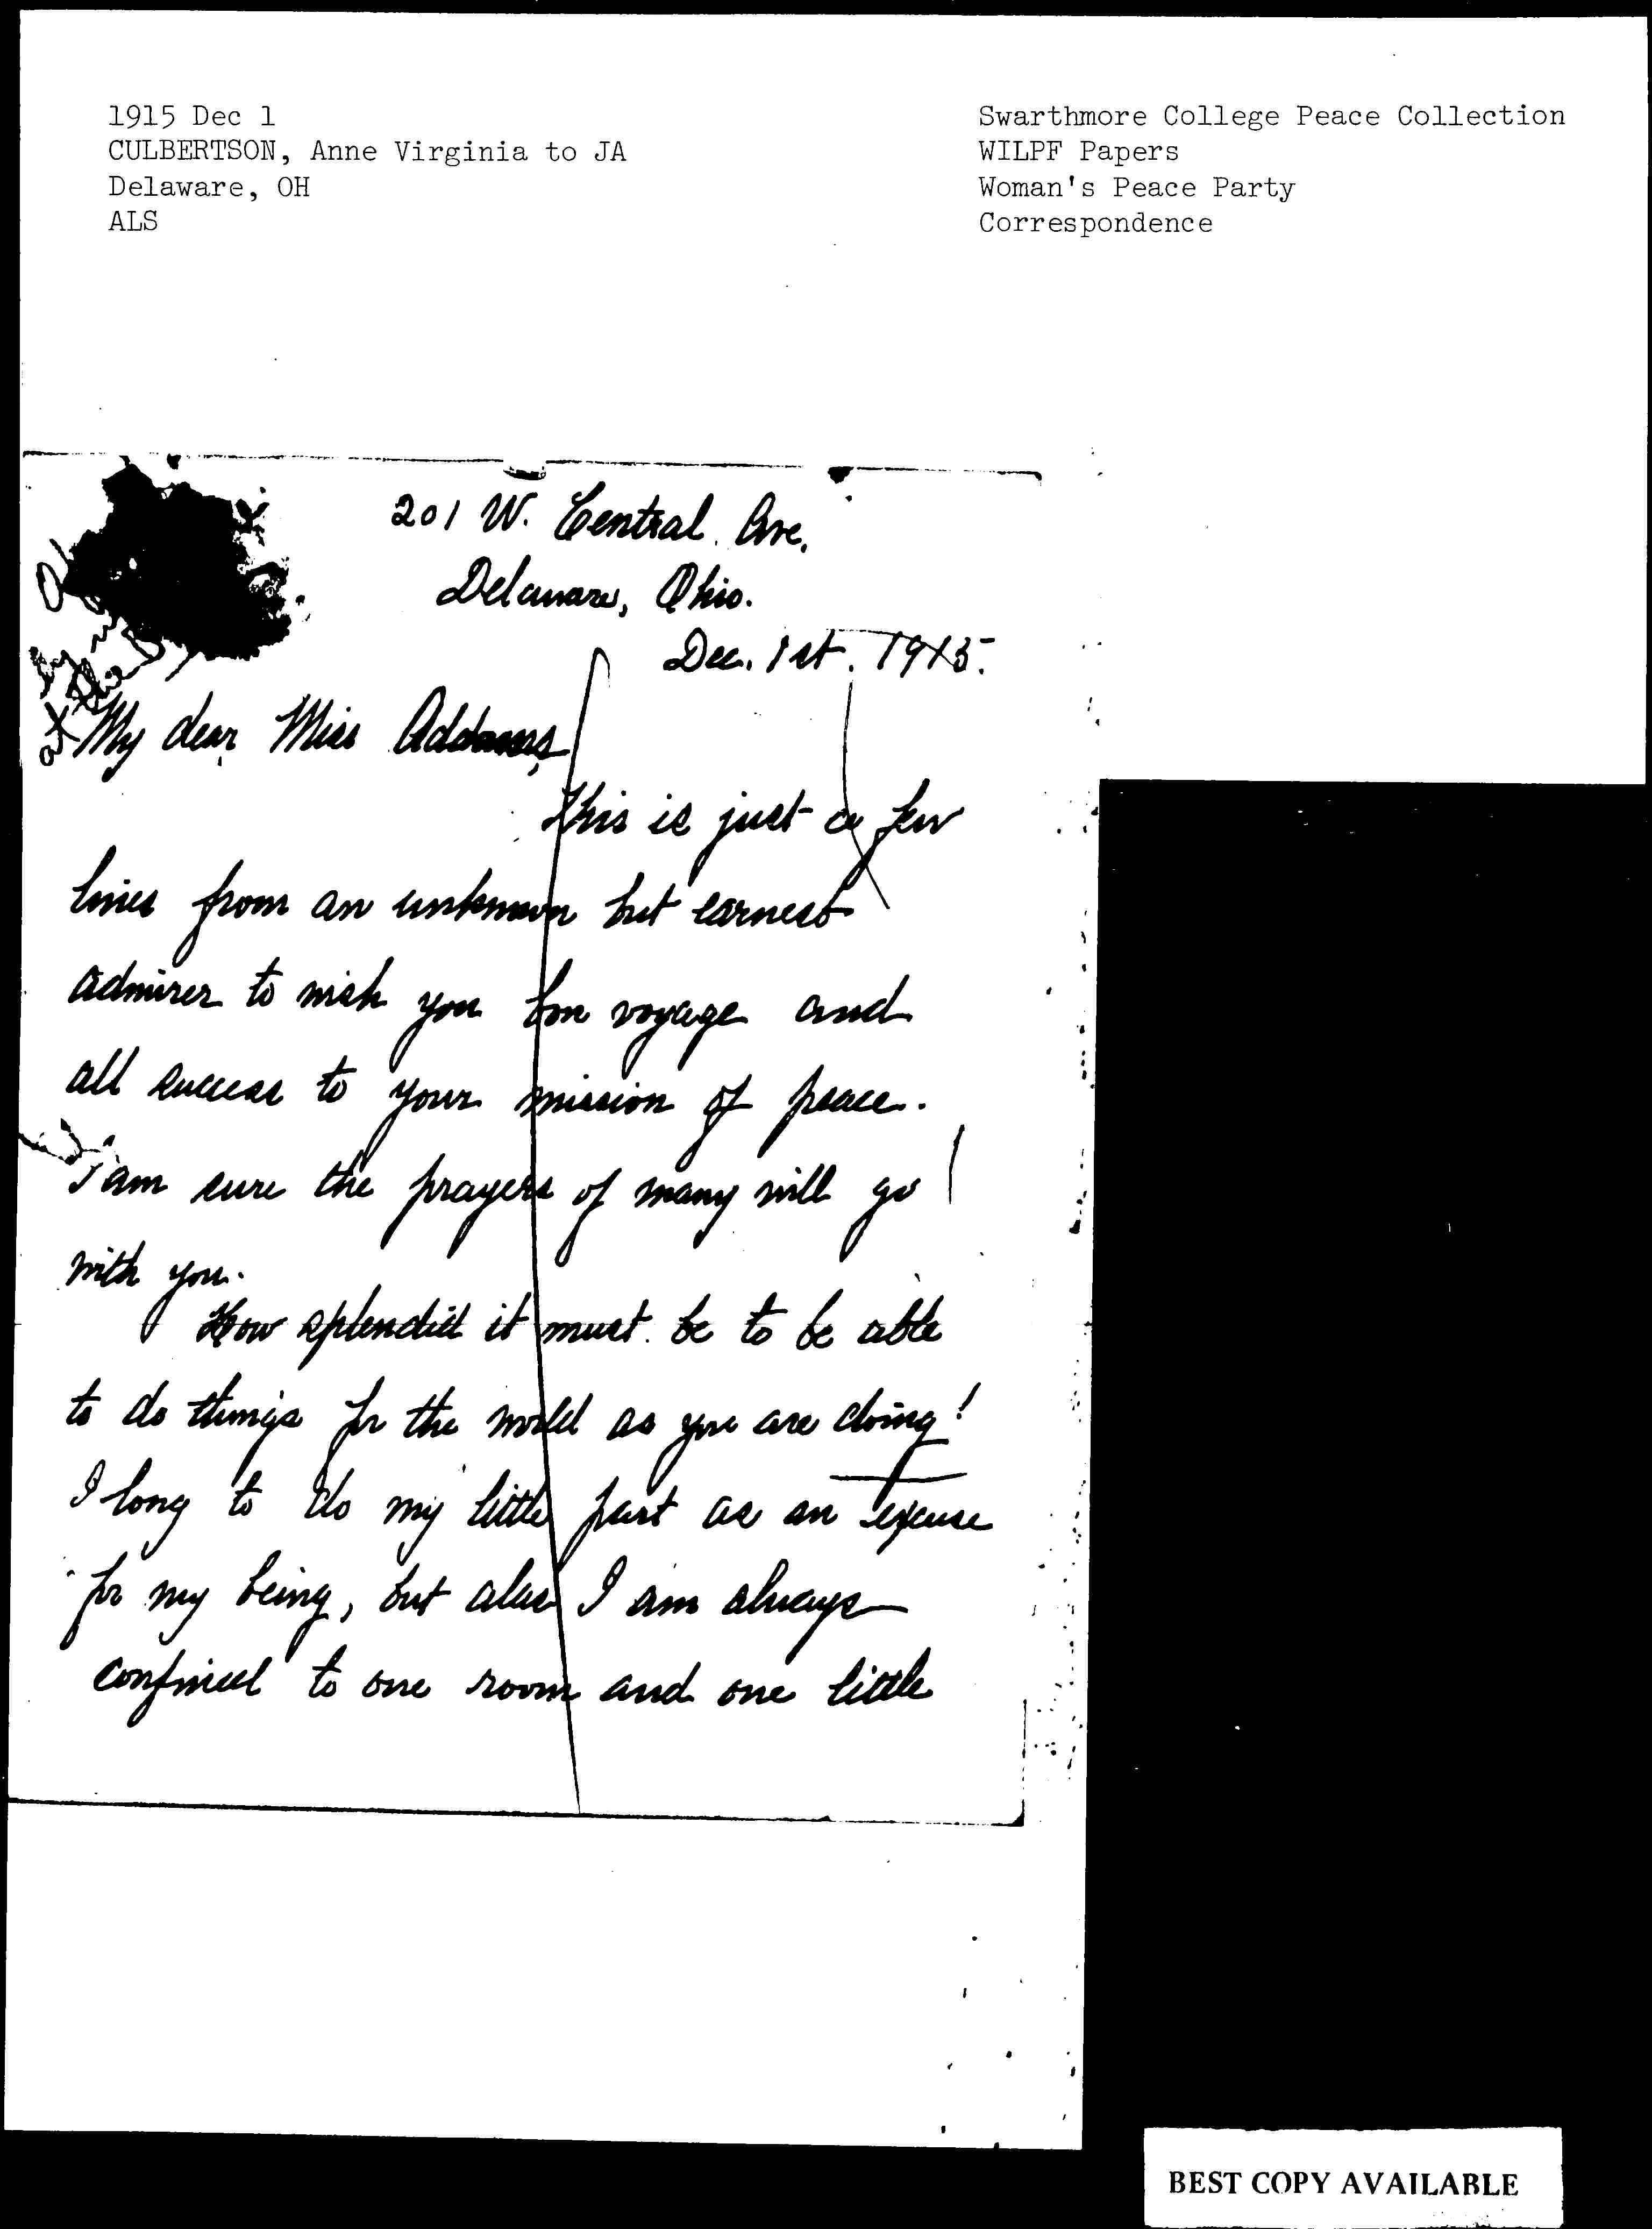 1915 Dec 1
CULBERTSON, Anne Virginia to JA
Delaware, OH
ALS
Swarthmore College Peace Collection
WILPF Papers
Woman's Peace Party
Correspondence
201 W. Central Ave.
Delaware, Ohio.
Dec. 1st. 1915.
at the
My dear Miss Addams,
This is just a few
lines from an unknown but earnest
admirer to wish you bon voyage and
all success to your mission of peace.
I am sure the prayers of many will go
with you.
How splendid it must be to be able
to do things for the world as you are doing!
I long to do my little part as an excuse
for my being, but alas I am always
confined to one room and one little
BEST COPY AVAILABLE